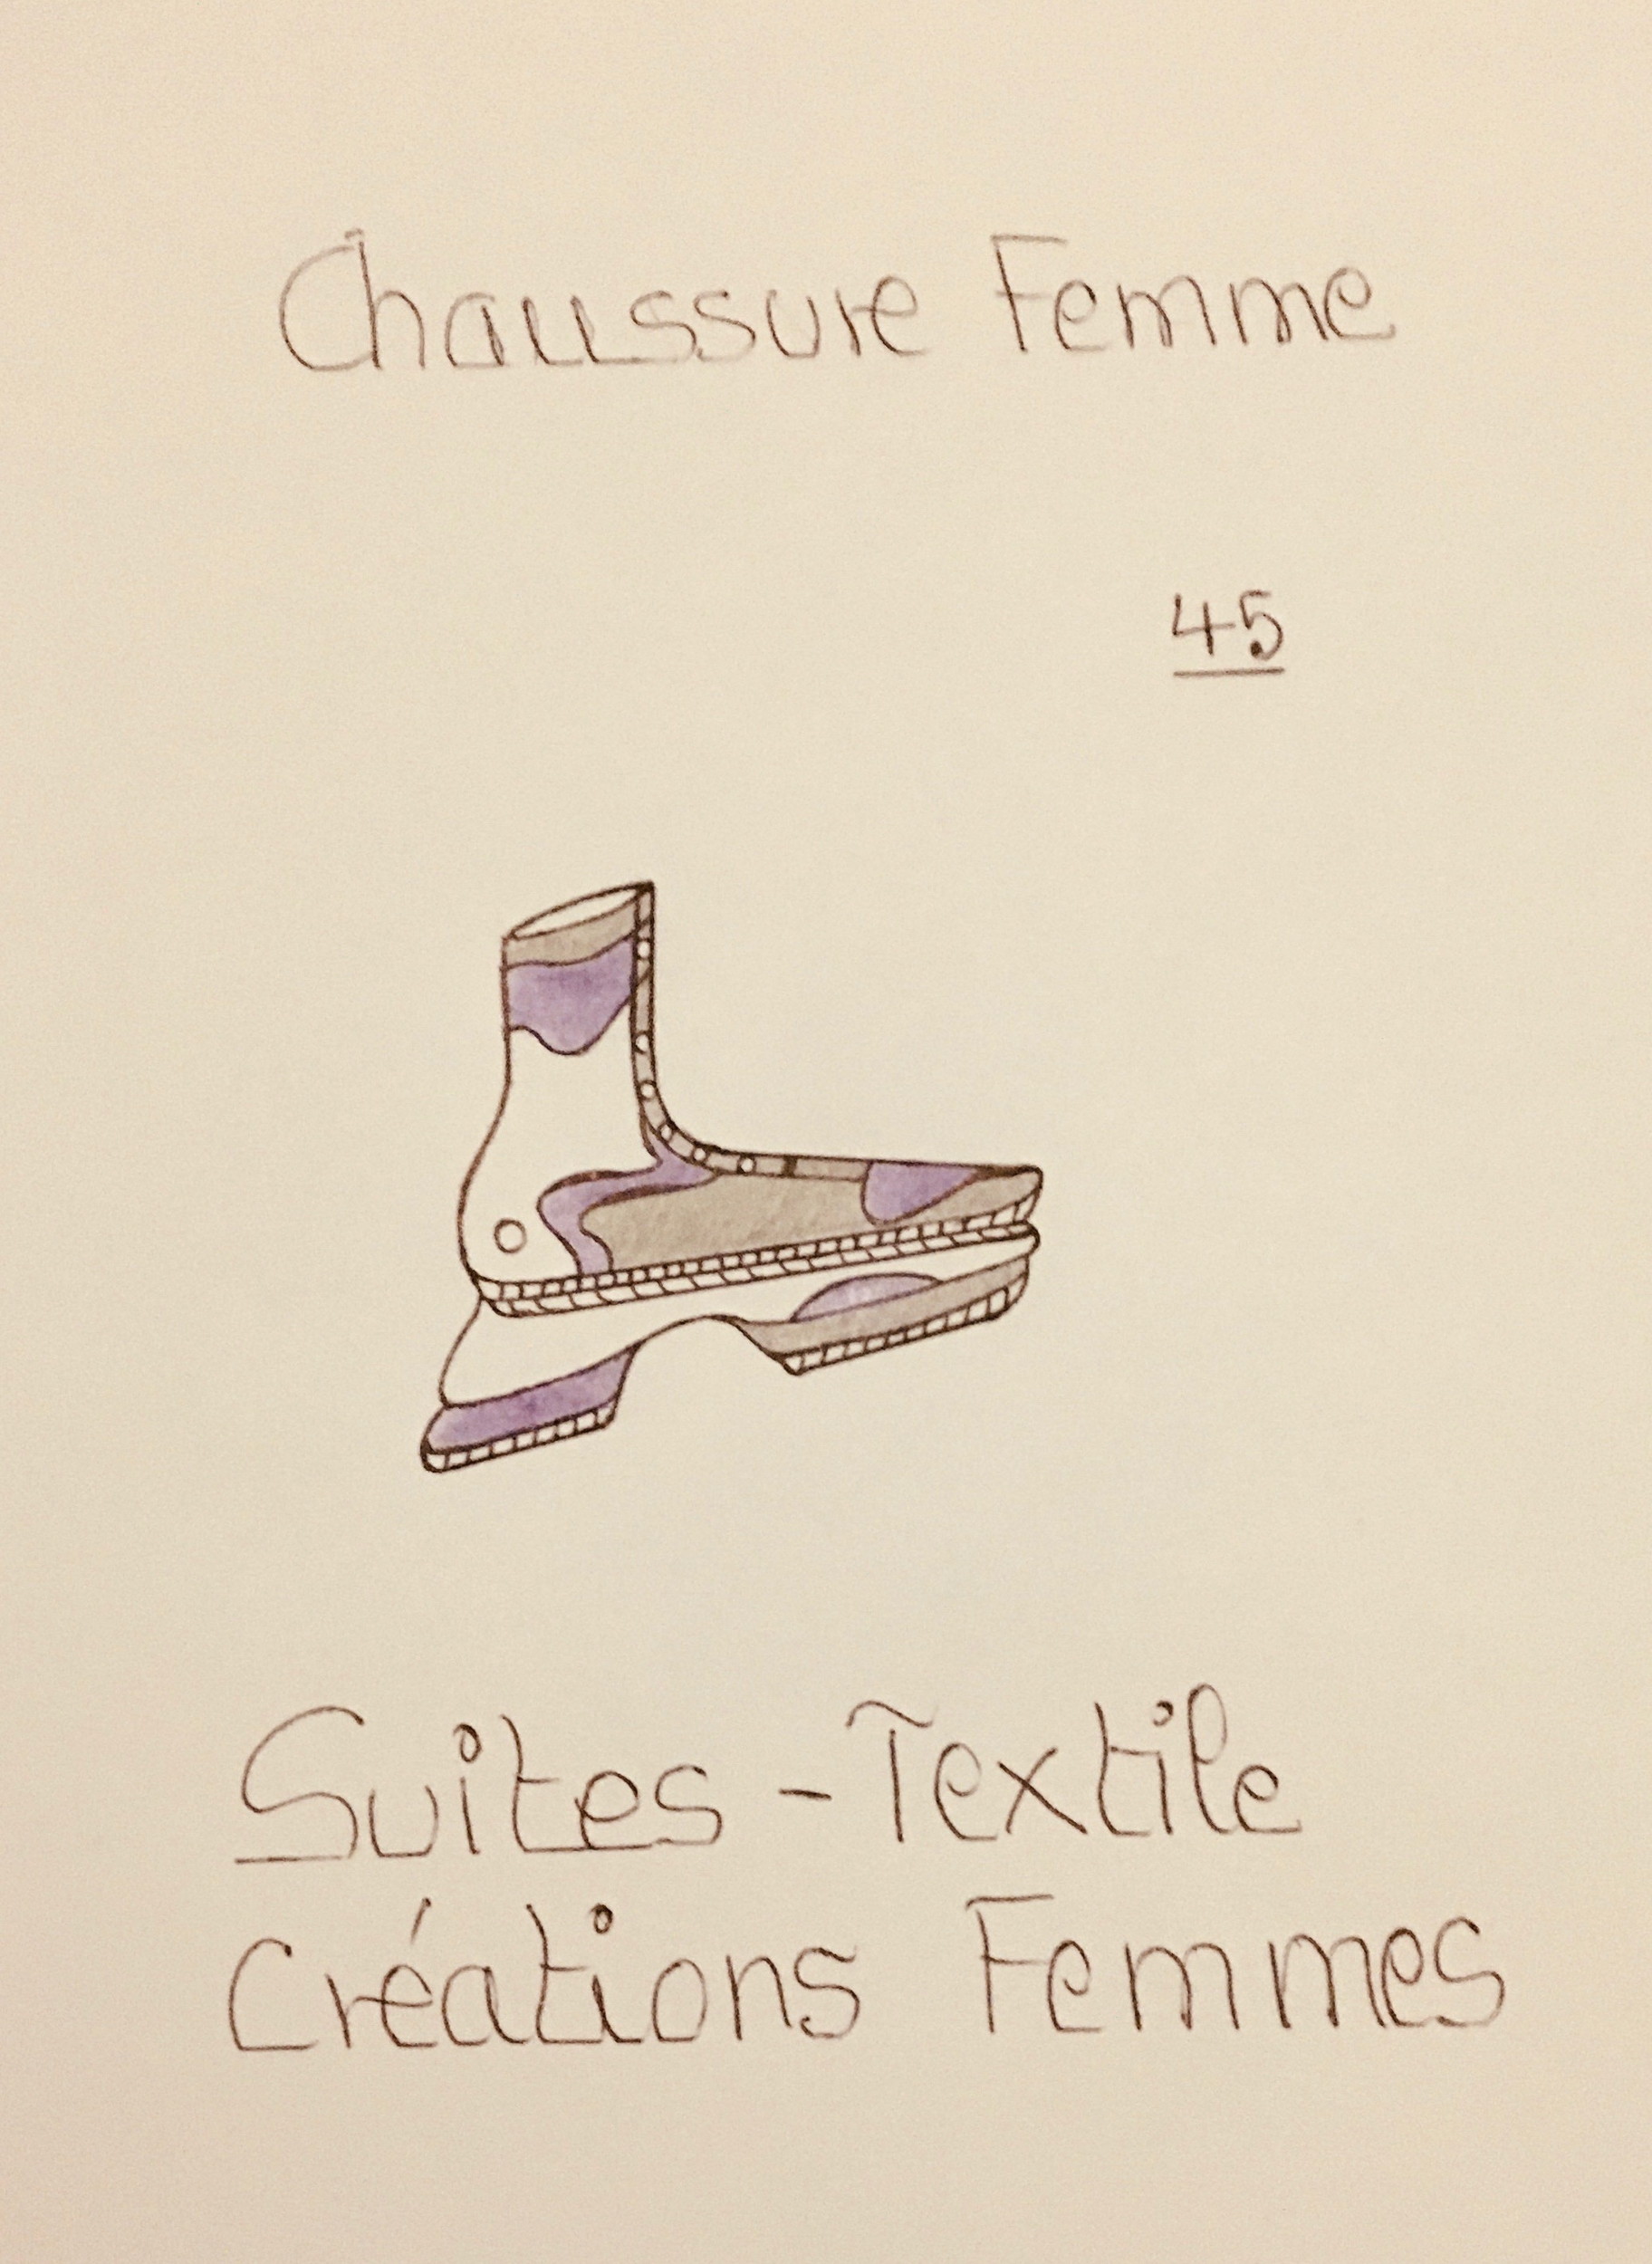 Chaussure Femme
45
Suites - Textile
Créations Femmes